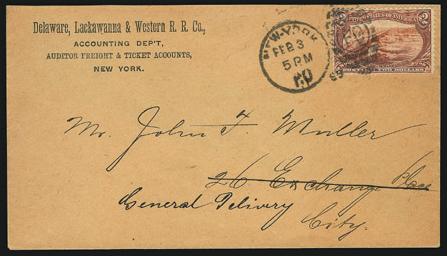 Delaware, Lackawanna & Western R. R. Co.,
ACCOUNTING DEP'T,
AUDITOR FREIGHT & TICKET ACCOUNTS,
NEW YORK.
NEW-YORK
FEB 3
5 PM
2
Mr. John F. Muller
26 Exchange Place
General Delivery
City.